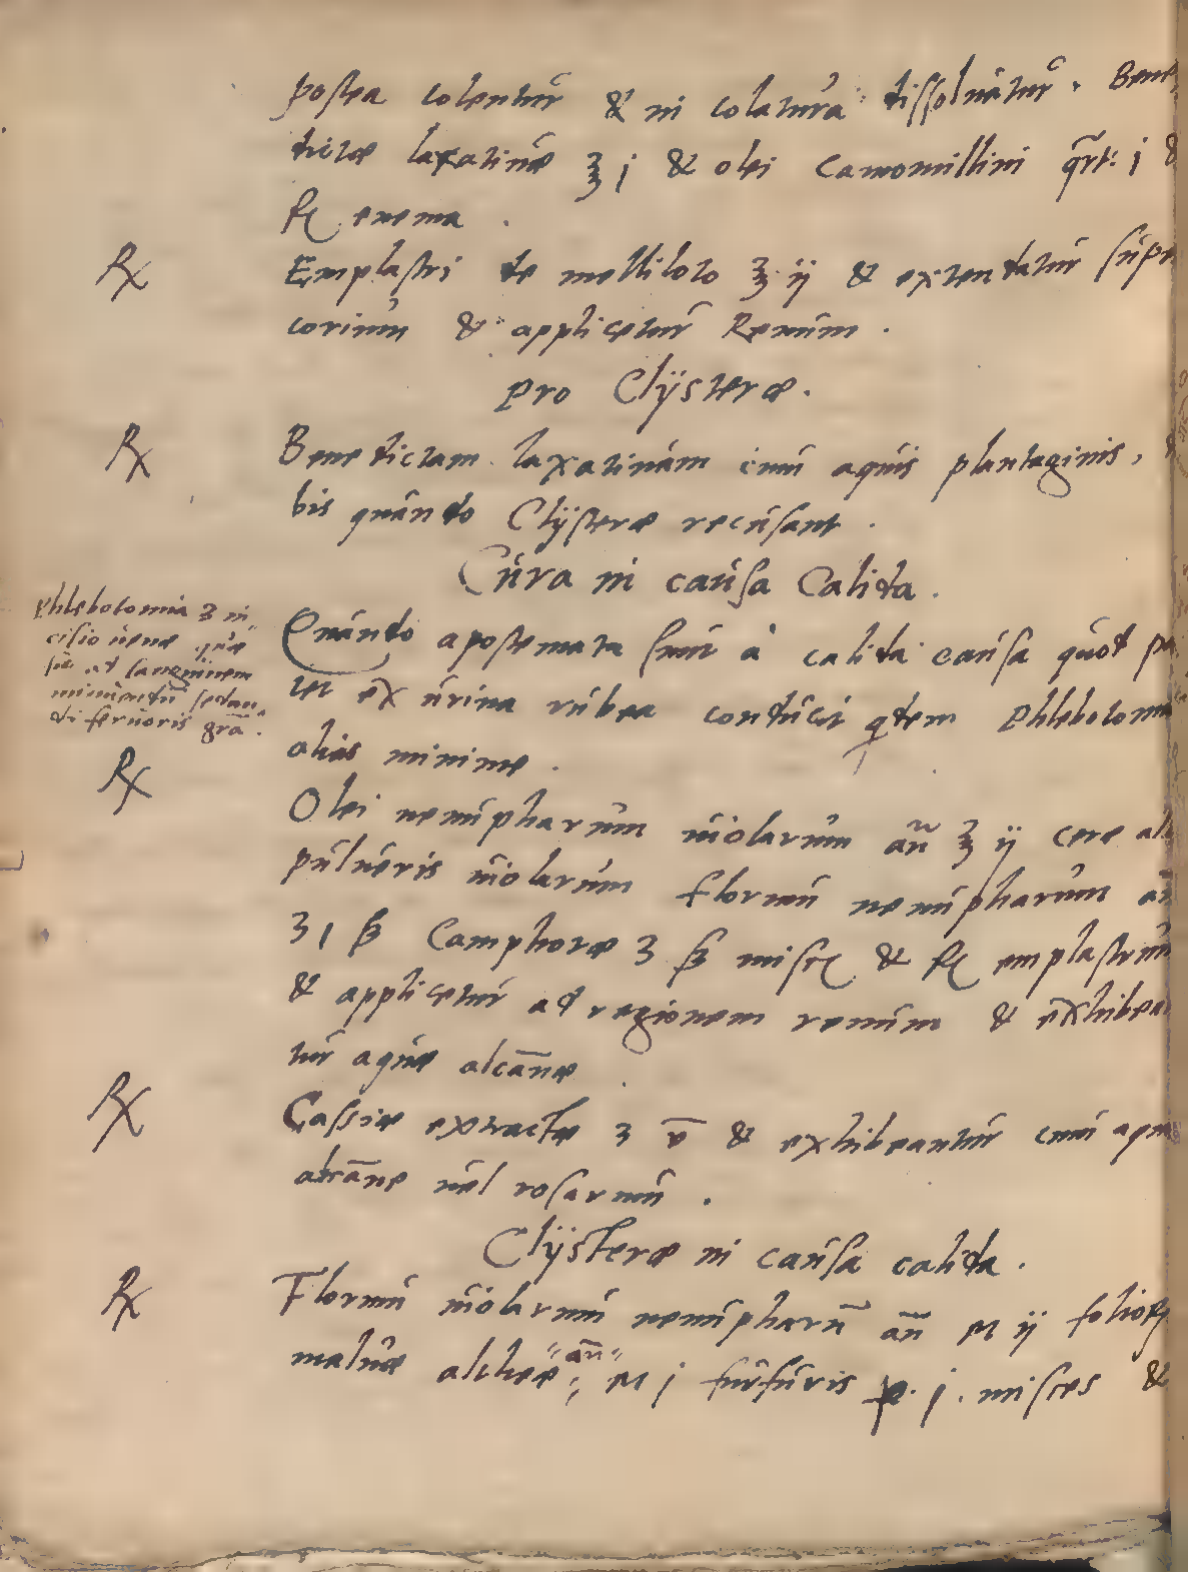 postea colentur & in colatura dissoluātur. Bene
dictæ laxatiuæ ℥ j & olei camomillini q̄rt: j &
f[ enema.
℞ Emplastri de melliloto ℥ ij & extendatur supr
corium & applicetur Renum.
pro Clÿsteræ.
℞ Benedictam laxatiuam cum aquis plantaginis,
bis quando Clÿsteræ recusant.
Cura in causa Calida.
Phlebotomia ʒ in
cisio uenæ quæ
fit ad sanguinem
minuendū sedan
di feruoris grā.
Quando apostemata sunt à calida causa quod pa
tet ex urina rubea conducit q̄dem Phlebotomia
alias minime.
℞ Olei nenupharum uiolarum añ ℥ ij cere alb
pulueris uiolarum florum nenupharum añ
ʒ j ß Camphoræ ʒ ß misc[ & f[ emplastrum
& applicetur ad regionem renum & exhibean
tur aquæ alcānæ.
℞ Cassiæ extractæ ʒ v̄ & exhibeantur cum aqua
alcāne uel rosarum.
Clÿsteræ in causa calida.
℞ Florum uiolarum nenupharū añ M ij folioꝝ
maluæ altheæ "añ" M j furfuris p. j. misces &